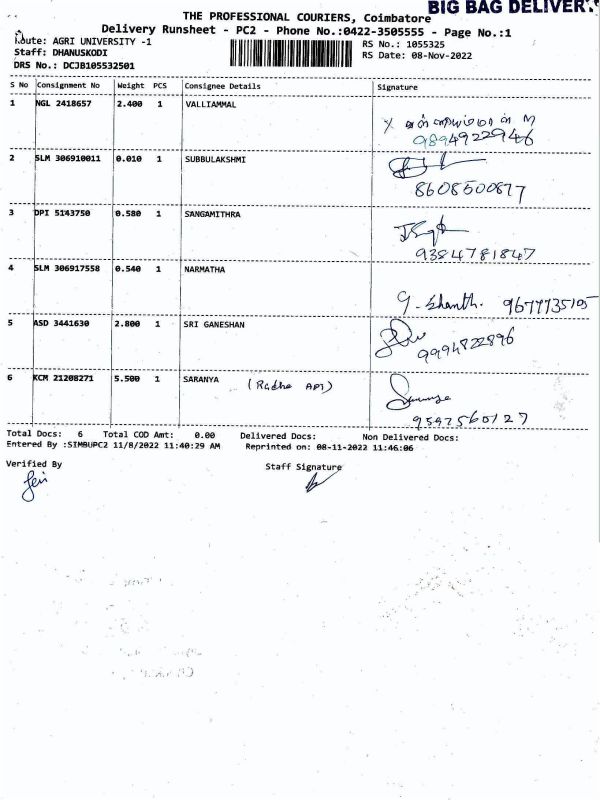 BIG BAG DELIVERY
THE PROFESSIONAL COURIERS, Coimbatore
Delivery Runsheet - PC2 - Phone No.:0422-3505555 - Page No.:1
Route: AGRI UNIVERSITY -1
RS No.: 1055325
Staff: DHANUSKODI
RS Date: 08-Nov-2022
DRS No.: DCJB105532501
S No Consignment No Weight PCS Consignee Details Signature
1 NGL 2418657 2.400 1 VALLIAMMAL
X
9894922946
2 SLM 306910011 0.010 1 SUBBULAKSHMI
8608500877
3 DPI 5143750 0.580 1 SANGAMITHRA
9384781847
4 SLM 306917558 0.540 1 NARMATHA
9677735195
5 ASD 3441630 2.800 1 SRI GANESHAN
9994822896
6 KCM 21208271 5.500 1 SARANYA (Radha APT)
9597560127
Total Docs: 6 Total COD Amt: 0.00 Delivered Docs: Non Delivered Docs:
Entered By :SIMBUPC2 11/8/2022 11:40:29 AM Reprinted on: 08-11-2022 11:46:06
Verified By
Staff Signature